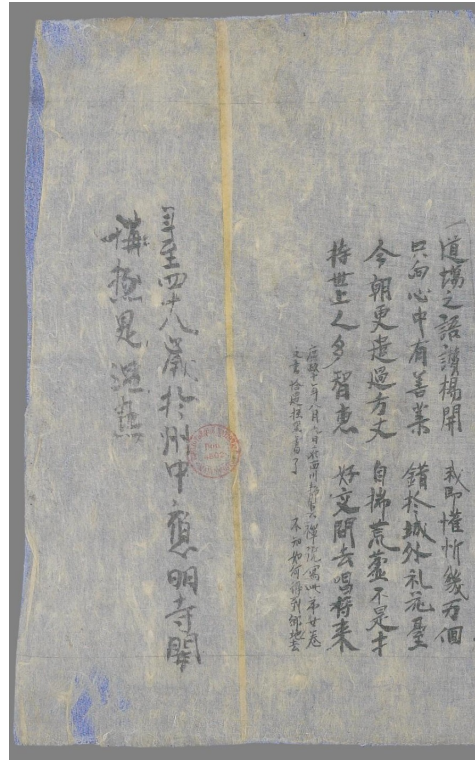 道塲之語護楊開　我即懽忻幾万個
只向心中有善業　錯於城外礼花臺
今朝更遣過方丈　自揣荒蕪不是才
持世上人多智惠　好交問去唱將来
廣政十年八月九日在西川静真禪寺寫此第廿卷
文書恰遇抵黑書了　不知如何得到鄉地去
年至四十八歲於州中應明寺開
講極是温熱